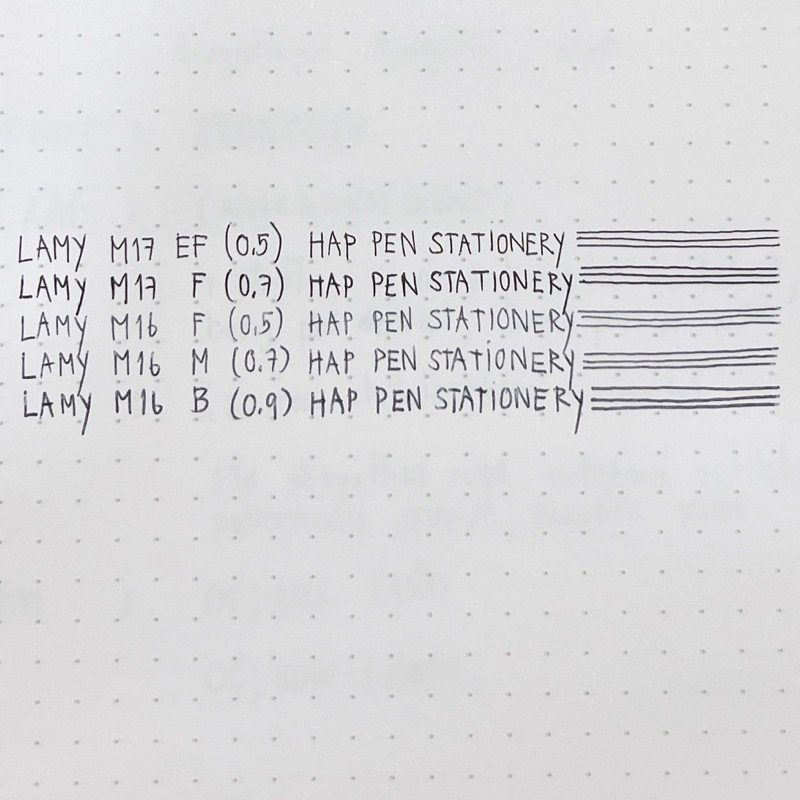 LAMY M17 EF (0.5) HAP PEN STATIONERY
LAMY M17 F (0.7) HAP PEN STATIONERY
LAMY M16 F (0.5) HAP PEN STATIONERY
LAMY M16 M (0.7) HAP PEN STATIONERY
LAMY M16 B (0.9) HAP PEN STATIONERY